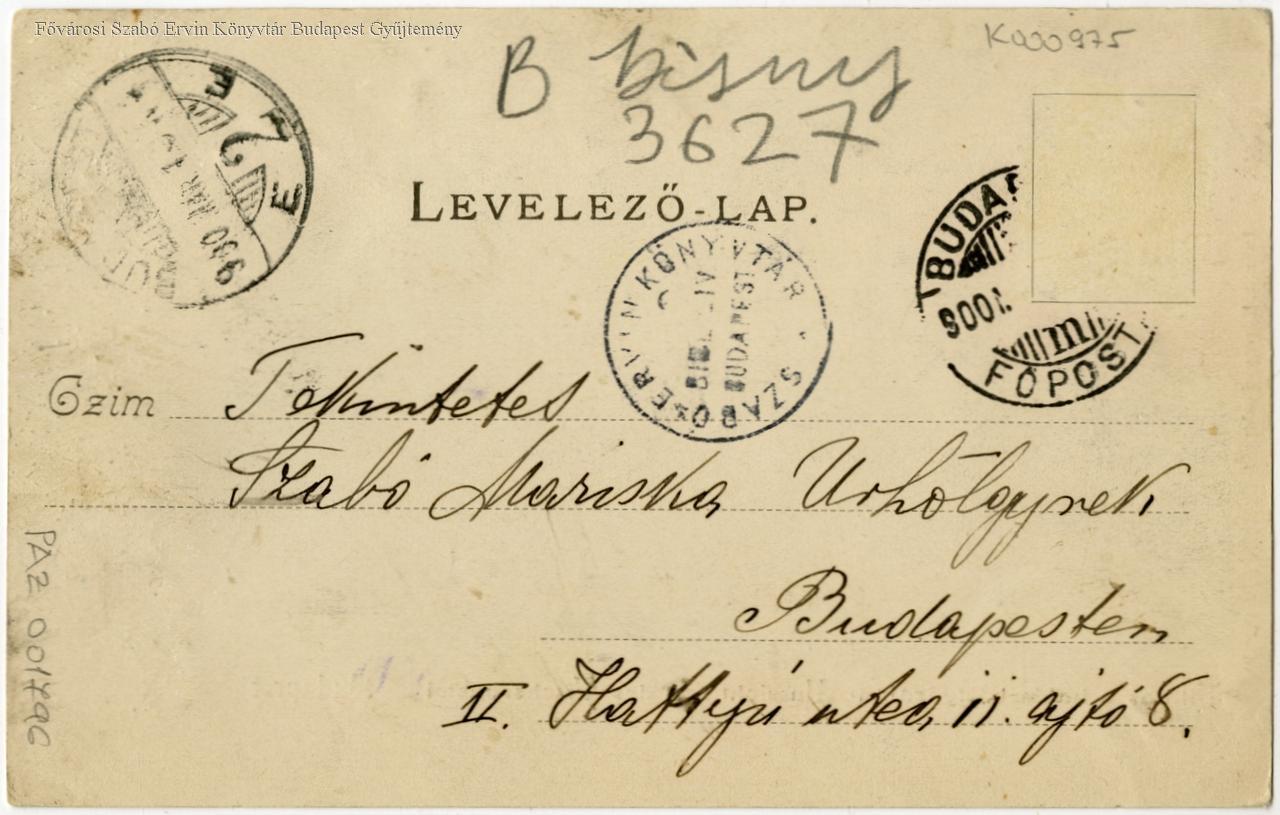 Fővárosi Szabó Ervin Könyvtár Budapest Gyűjtemény
K000975
B
3627
LEVELEZŐ-LAP.
BUDAP
900
m
FŐPOST
ELE
900 MÁR
SZABÓ ERVIN KÖNYVTÁR
BUDAPEST
Czim Tekintetes
Szabó Mariska Urhölgynek
Budapesten
II. Hattyú utca 11. ajtó 8.
PAZ 001796